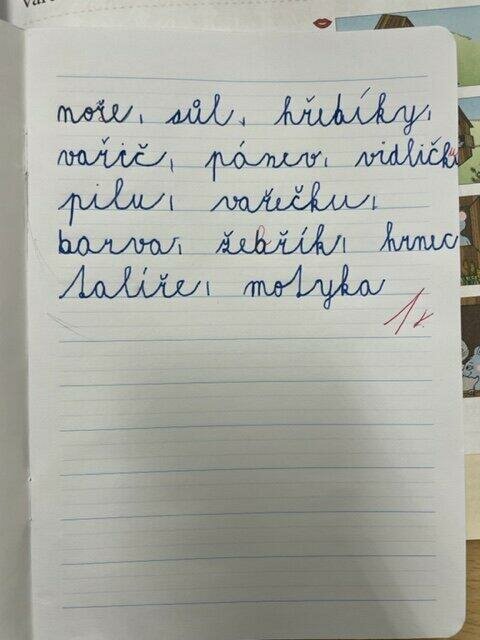 nože, sůl, hřebíky,
vařič, pánev, vidličk
pilu, vařečku,
barva, žebřík, hrnec
talíře, motyka
1